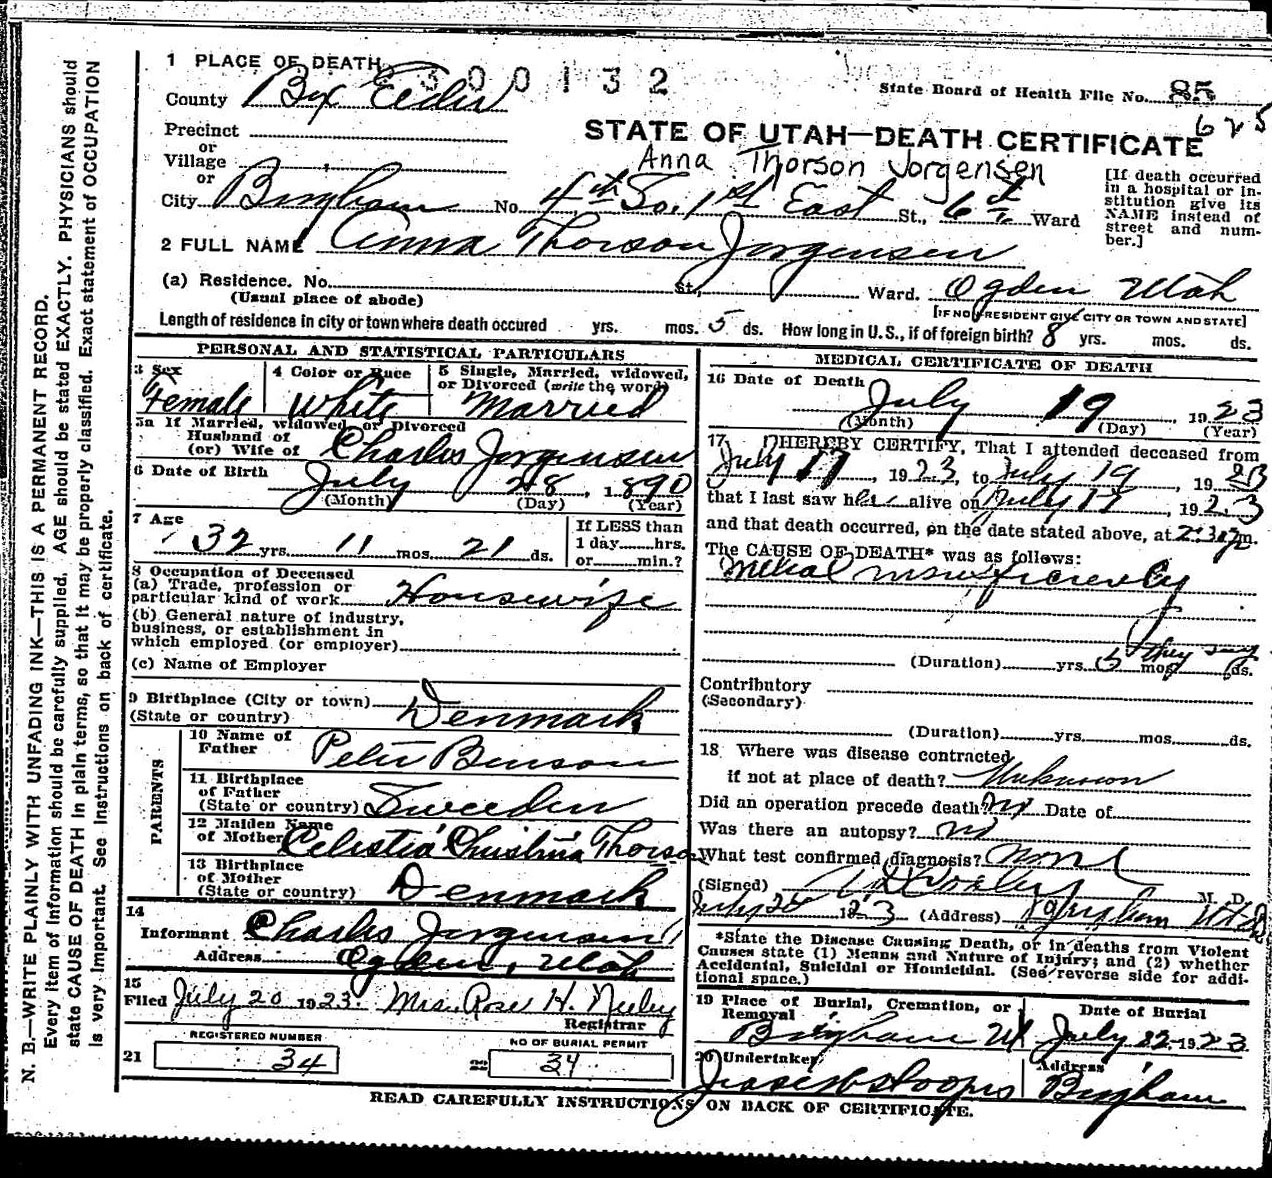 1 PLACE OF DEARTH 2300132
State Board of Health File No. 85
County Box Elder
625
Precinct
STATE OF UTAH—DEATH CERTIFICATE
or
Village
Anna Thorson Jorgensen
or
City Brigham No. 4th So. 1st East St., 6th Ward
[If death occurred in a hospital or in-
stitution give its
NAME instead of
street and num-
ber.]
2 FULL NAME Anna Thorson Jorgensen
(a) Residence. No. St., Ward. Ogden Utah
(Usual place of abode)
[IF NON RESIDENT GIVE CITY OR TOWN AND STATE]
Length of residence in city or town where death occured yrs. mos. 5 ds. How long in U.S., if of foreign birth? 8 yrs. mos. ds.
PERSONAL AND STATISTICAL PARTICULARS
3 Sex
Female
4 Color or Race
White
5 Single, Married, widowed,
or Divorced (write the word)
Married
5a If Married, widowed or Divorced
Husband of
(or) Wife of Charles Jorgensen
6 Date of Birth July 28, 1890
(Month) (Day) (Year)
7 Age
32 yrs. 11 mos. 21 ds.
If LESS than
1 day hrs.
or min.?
8 Occupation of Deceased
(a) Trade, profession or
particular kind of work Housewife
(b) General nature of industry,
business, or establishment in
which employed (or employer)
(c) Name of Employer
9 Birthplace (City or town)
(State or country) Denmark
PARENTS
10 Name of
Father Peter Benson
11 Birthplace
of Father
(State or country) Sweeden
12 Maiden Name
of Mother Celestia Christina Thorson
13 Birthplace
of Mother
(State or country) Denmark
14
Informant Charles Jorgensen
Address Ogden, Utah
15
Filed July 20 1923. Mrs. Rose H. Neeley
Registrar
REGISTERED NUMBER
21 34
NO OF BURIAL PERMIT
22 34
MEDICAL CERTIFICATE OF DEATH
16 Date of Death July 19 1923
(Month) (Day) (Year)
17 I HEREBY CERTIFY, That I attended deceased from
July 17, 1923, to July 19, 1923
that I last saw her alive on July 17, 1923
and that death occurred, on the date stated above, at 2:30 p m.
The CAUSE OF DEATH* was as follows:
Mitral insufficiency
they say
(Duration) yrs. 5 mos. ds.
Contributory
(Secondary)
(Duration) yrs. mos. ds.
18 Where was disease contracted
if not at place of death? Unknown
Did an operation precede death? No Date of
Was there an autopsy? no
What test confirmed diagnosis? none
(Signed) M. D.
July 20 1923 (Address) Brigham Utah
*State the Disease Causing Death, or in deaths from Violent
Causes state (1) Means and Nature of Injury; and (2) whether
Accidental, Suicidal or Homicidal. (See reverse side for addi-
tional space.)
19 Place of Burial, Cremation, or
Removal
Brigham Ut
Date of Burial
July 22 1923
20 Undertaker
Address
Brigham
READ CAREFULLY INSTRUCTIONS ON BACK OF CERTIFICATE.
N. B.—WRITE PLAINLY WITH UNFADING INK—THIS IS A PERMANENT RECORD.
Every item of information should be carefully supplied. AGE should be stated EXACTLY. PHYSICIANS should
state CAUSE OF DEATH in plain terms, so that it may be properly classified. Exact statement of OCCUPATION
is very important. See instructions on back of certificate.